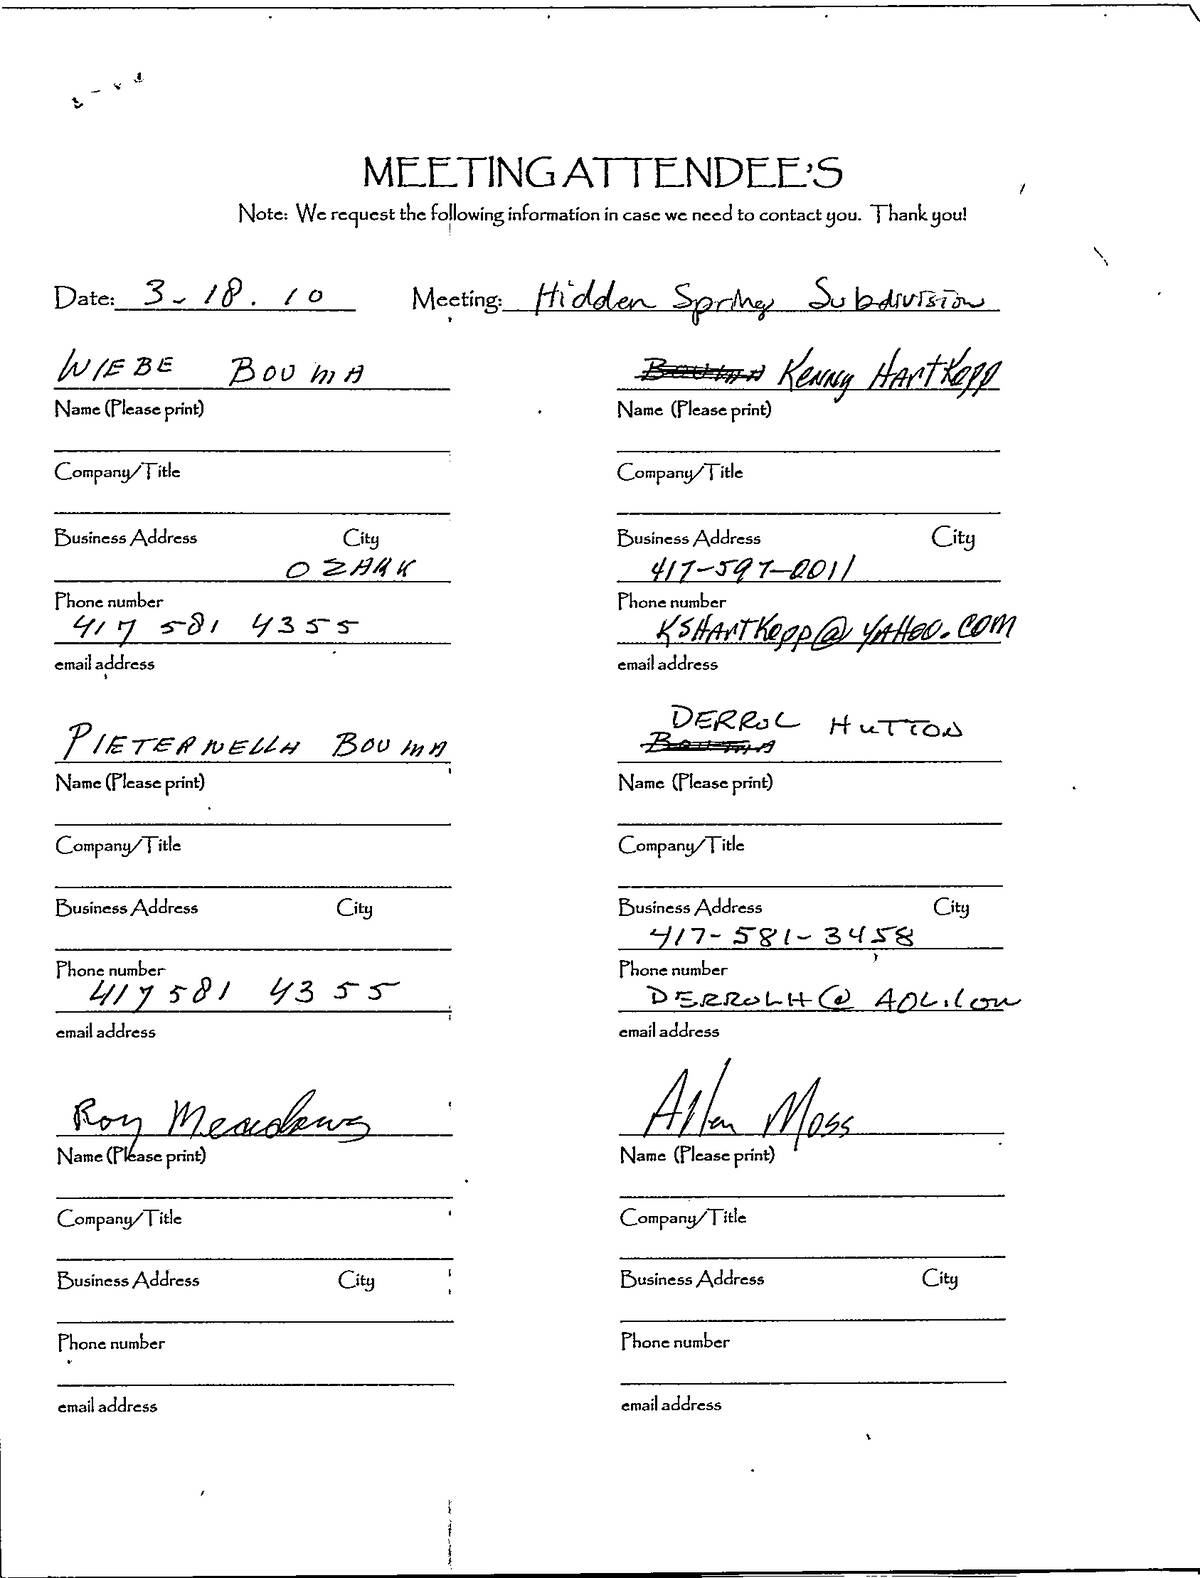 MEETING ATTENDEE'S
Note: We request the following information in case we need to contact you. Thank you!
Date: 3-18.10 Meeting: Hidden Springs Subdivision
WIEBE BOUMA
Name (Please print)
Company/Title
Business Address City
OZARK
Phone number
417 581 4355
email address
BOUMA Kenny HartKopp
Name (Please print)
Company/Title
Business Address City
417-597-0011
Phone number
KSHARTKOPP@YAHOO.COM
email address
PIETERNELLA BOUMA
Name (Please print)
Company/Title
Business Address City
Phone number
417 581 4355
email address
DERROL HUTTON
BOUMA
Name (Please print)
Company/Title
Business Address City
417-581-3458
Phone number
DERROLH@AOL.COM
email address
Roy Meadows
Name (Please print)
Company/Title
Business Address City
Phone number
email address
Allen Moss
Name (Please print)
Company/Title
Business Address City
Phone number
email address